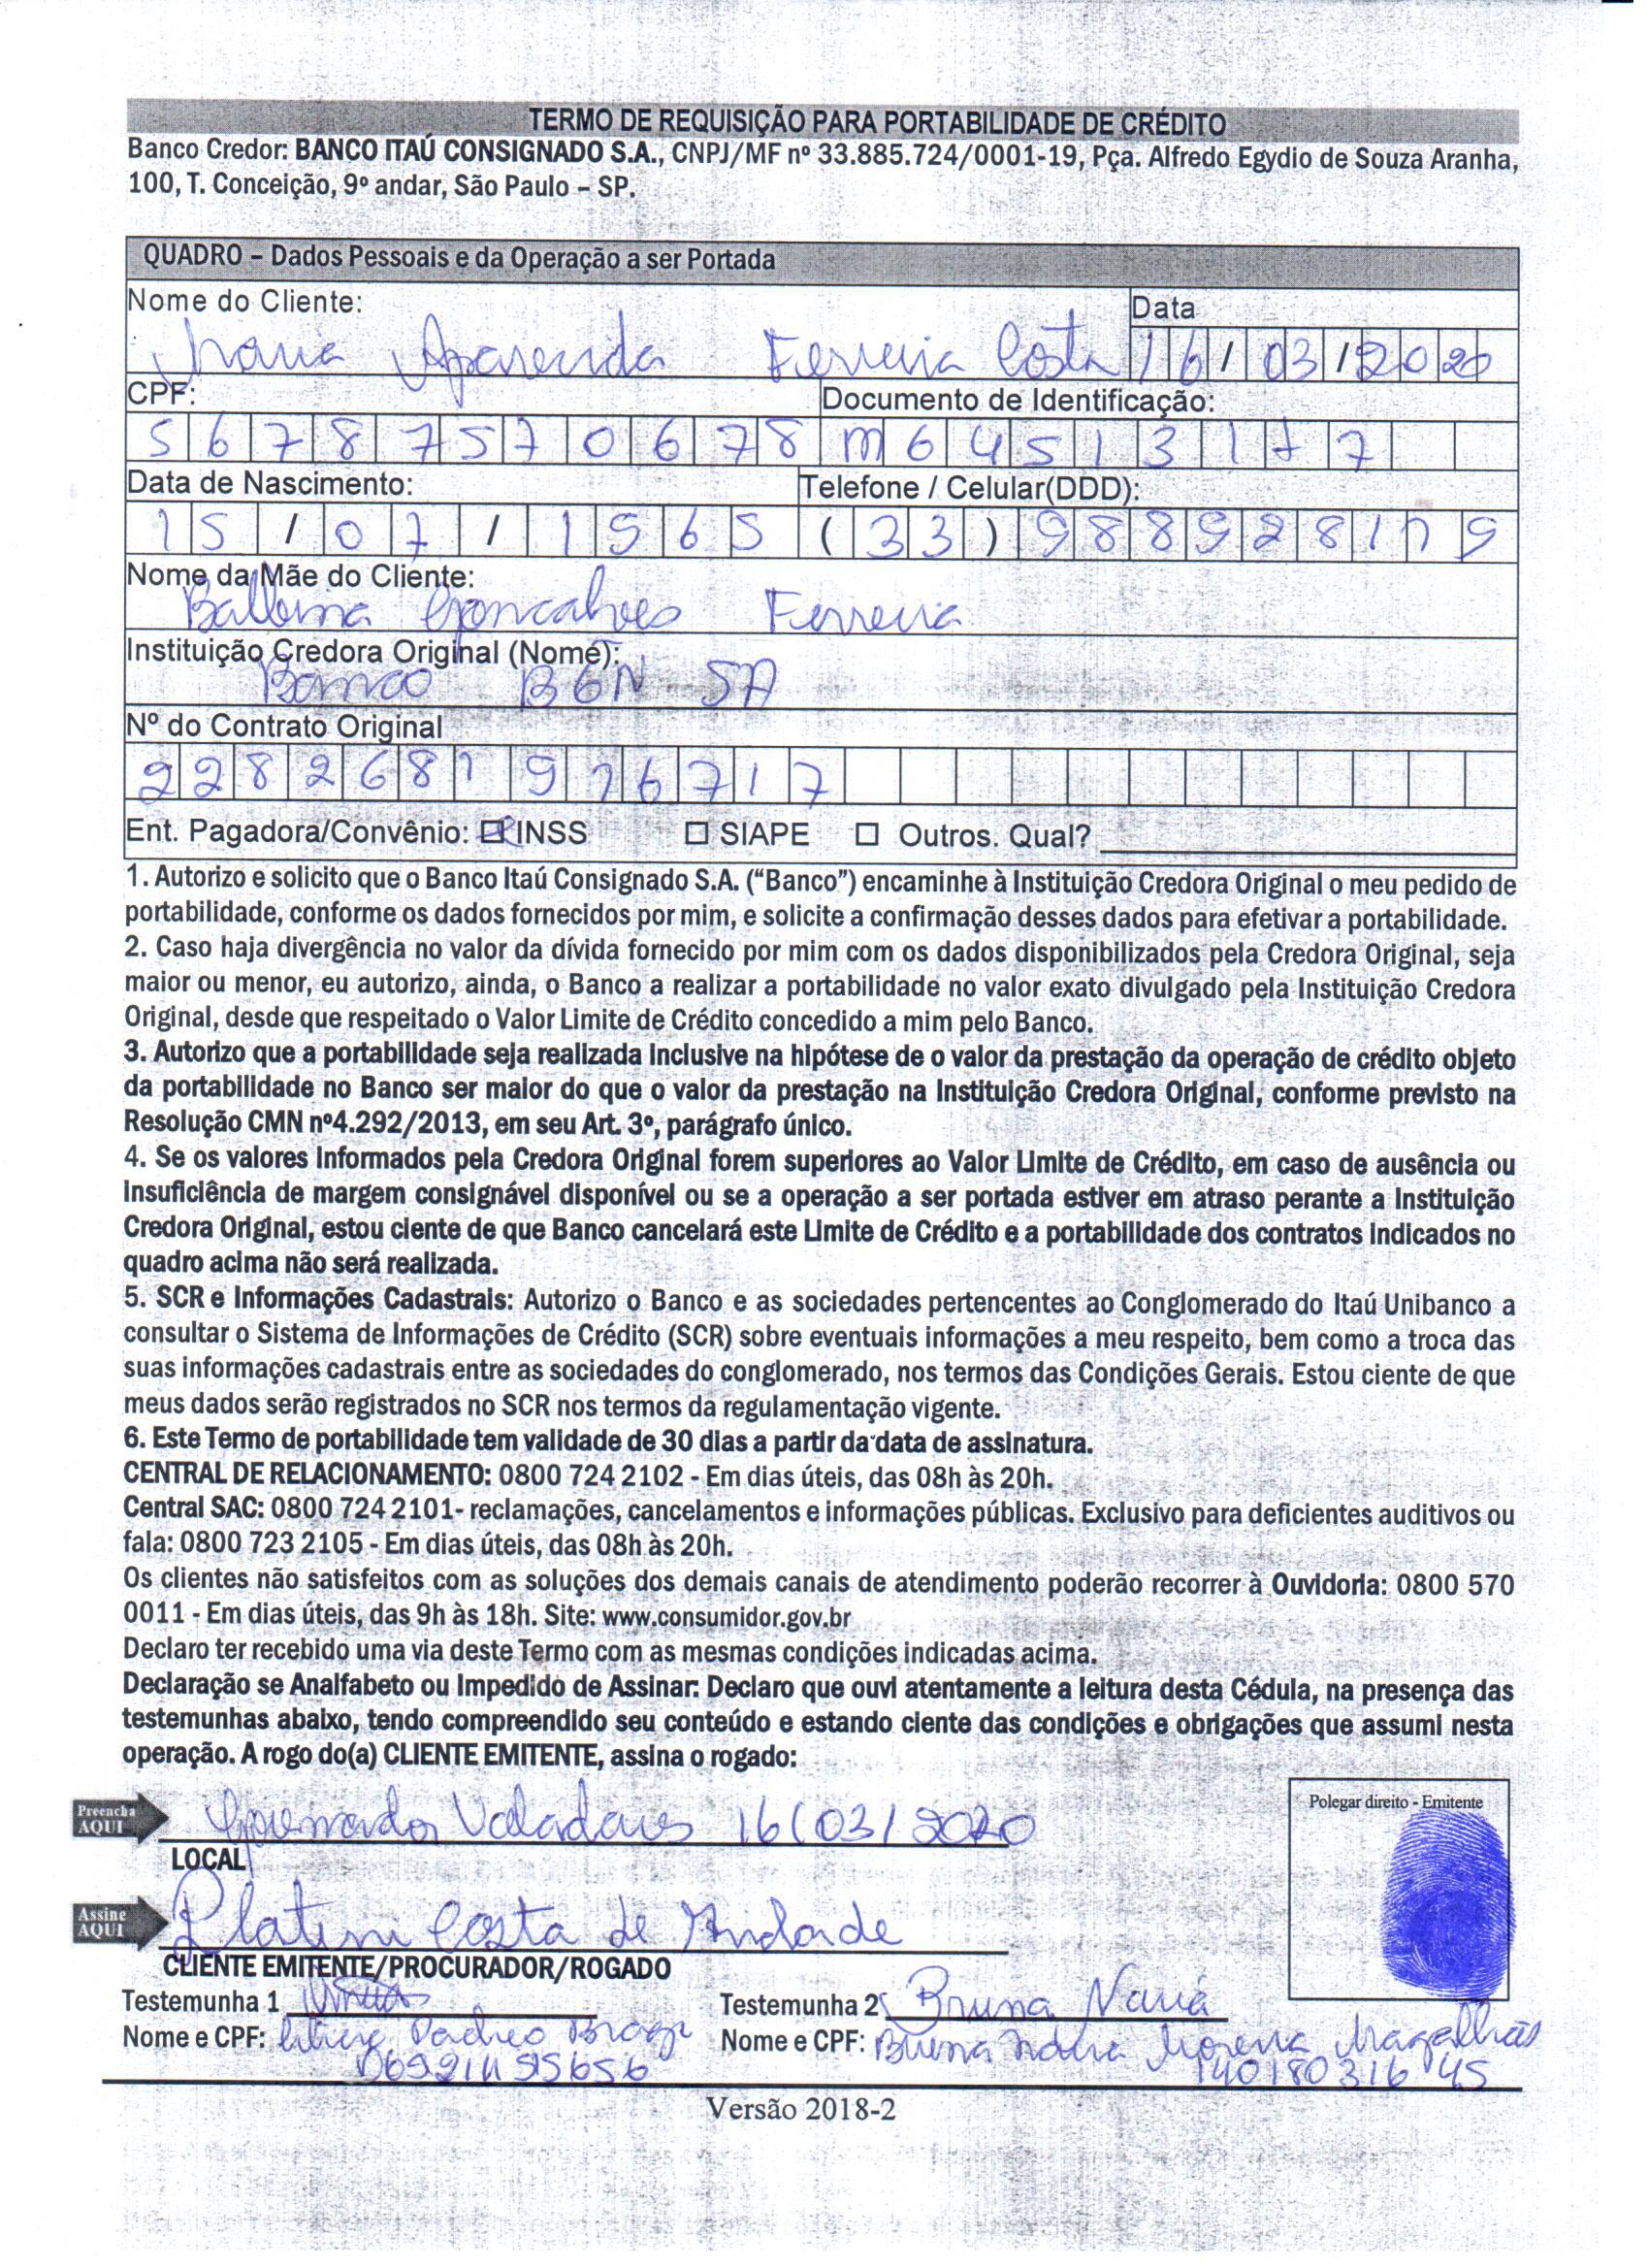 TERMO DE REQUISIÇÃO PARA PORTABILIDADE DE CRÉDITO
Banco Credor: BANCO ITAÚ CONSIGNADO S.A., CNPJ/MF nº 33.885.724/0001-19, Pça. Alfredo Egydio de Souza Aranha,
100, T. Conceição, 9º andar, São Paulo – SP.
QUADRO – Dados Pessoais e da Operação a ser Portada
Nome do Cliente: Data
Maria Aparecida Ferreira Costa 16/03/2020
CPF: Documento de Identificação:
56787570678 M64513177
Data de Nascimento: Telefone / Celular(DDD):
15/07/1965 (33)988928179
Nome da Mãe do Cliente:
Balbina Goncalves Ferreira
Instituição Credora Original (Nome):
Banco BGN SA
Nº do Contrato Original
2282681976717
Ent. Pagadora/Convênio: ☒ INSS ☐ SIAPE ☐ Outros. Qual?
1. Autorizo e solicito que o Banco Itaú Consignado S.A. (“Banco”) encaminhe à Instituição Credora Original o meu pedido de
portabilidade, conforme os dados fornecidos por mim, e solicite a confirmação desses dados para efetivar a portabilidade.
2. Caso haja divergência no valor da dívida fornecido por mim com os dados disponibilizados pela Credora Original, seja
maior ou menor, eu autorizo, ainda, o Banco a realizar a portabilidade no valor exato divulgado pela Instituição Credora
Original, desde que respeitado o Valor Limite de Crédito concedido a mim pelo Banco.
3. Autorizo que a portabilidade seja realizada inclusive na hipótese de o valor da prestação da operação de crédito objeto
da portabilidade no Banco ser maior do que o valor da prestação na Instituição Credora Original, conforme previsto na
Resolução CMN nº4.292/2013, em seu Art. 3º, parágrafo único.
4. Se os valores informados pela Credora Original forem superiores ao Valor Limite de Crédito, em caso de ausência ou
insuficiência de margem consignável disponível ou se a operação a ser portada estiver em atraso perante a Instituição
Credora Original, estou ciente de que Banco cancelará este Limite de Crédito e a portabilidade dos contratos indicados no
quadro acima não será realizada.
5. SCR e Informações Cadastrais: Autorizo o Banco e as sociedades pertencentes ao Conglomerado do Itaú Unibanco a
consultar o Sistema de Informações de Crédito (SCR) sobre eventuais informações a meu respeito, bem como a troca das
suas informações cadastrais entre as sociedades do conglomerado, nos termos das Condições Gerais. Estou ciente de que
meus dados serão registrados no SCR nos termos da regulamentação vigente.
6. Este Termo de portabilidade tem validade de 30 dias a partir da data de assinatura.
CENTRAL DE RELACIONAMENTO: 0800 724 2102 - Em dias úteis, das 08h às 20h.
Central SAC: 0800 724 2101- reclamações, cancelamentos e informações públicas. Exclusivo para deficientes auditivos ou
fala: 0800 723 2105 - Em dias úteis, das 08h às 20h.
Os clientes não satisfeitos com as soluções dos demais canais de atendimento poderão recorrer à Ouvidoria: 0800 570
0011 - Em dias úteis, das 9h às 18h. Site: www.consumidor.gov.br
Declaro ter recebido uma via deste Termo com as mesmas condições indicadas acima.
Declaração se Analfabeto ou Impedido de Assinar: Declaro que ouvi atentamente a leitura desta Cédula, na presença das
testemunhas abaixo, tendo compreendido seu conteúdo e estando ciente das condições e obrigações que assumi nesta
operação. A rogo do(a) CLIENTE EMITENTE, assina o rogado:
Polegar direito - Emitente
Preencha AQUI Governador Valadares 16/03/2020
LOCAL
Assine AQUI Platini Costa de Andrade
CLIENTE EMITENTE/PROCURADOR/ROGADO
Testemunha 1 Testemunha 2 Bruna Nariá
Nome e CPF: Pacheo Nome e CPF: Bruna Moreira Magalhães
14018031645
Versão 2018-2